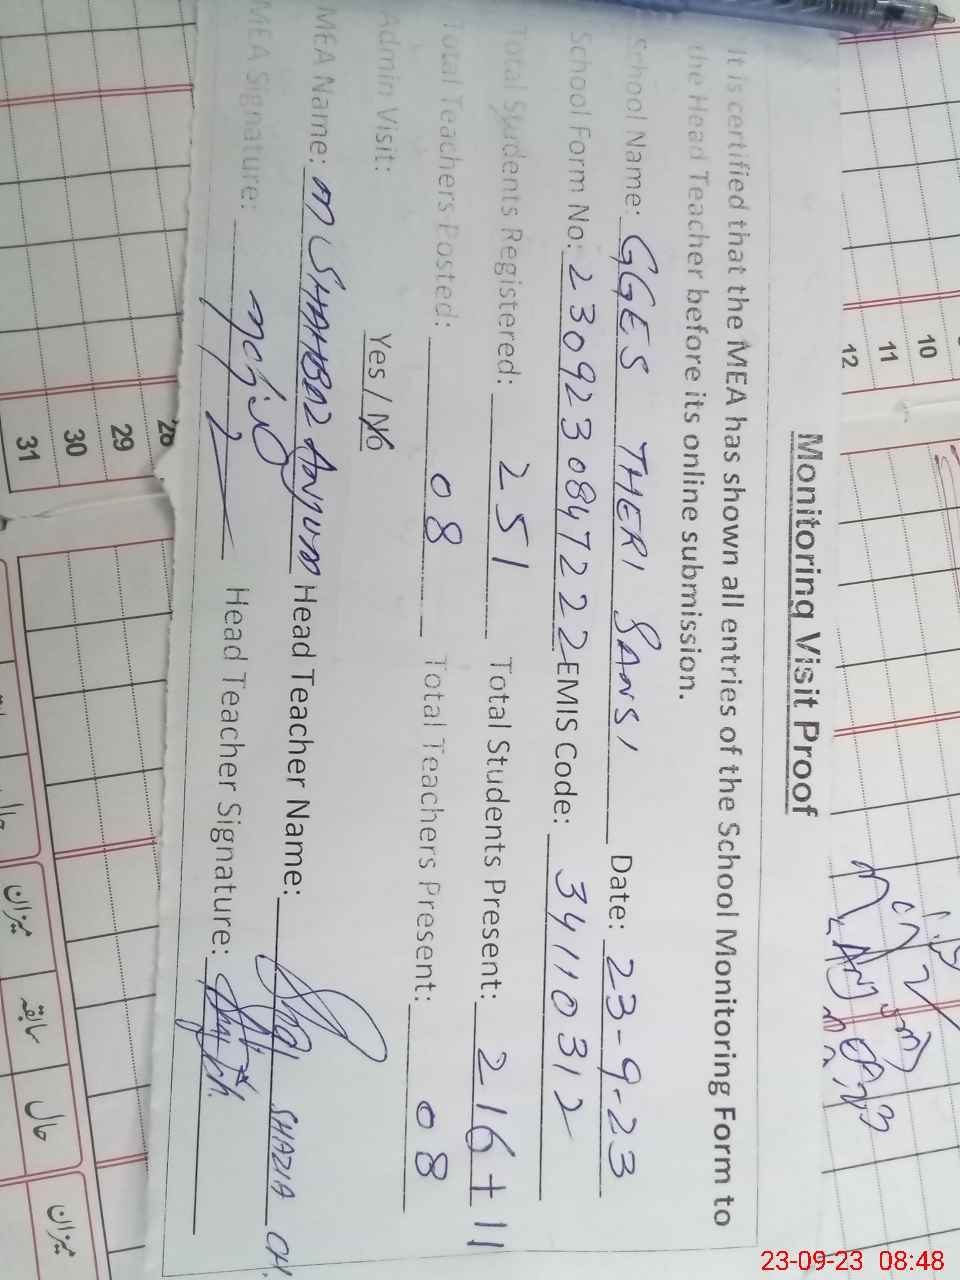 Monitoring Visit Proof
It is certified that the MEA has shown all entries of the School Monitoring Form to
the Head Teacher before its online submission.
School Name: GGES THERI SANSI Date: 23-9-23
School Form No: 2309230847222 EMIS Code: 34110312
Total Students Registered: 251 Total Students Present: 216+11
Total Teachers Posted: 08 Total Teachers Present: 08
Admin Visit: Yes / No
MEA Name: M SHAHBAZ Anjum Head Teacher Name: SHAZIA CH.
MEA Signature: Head Teacher Signature:
10
11
12
28
29
30
31
میزان
سابقہ
حال
میزان
23-09-23 08:48